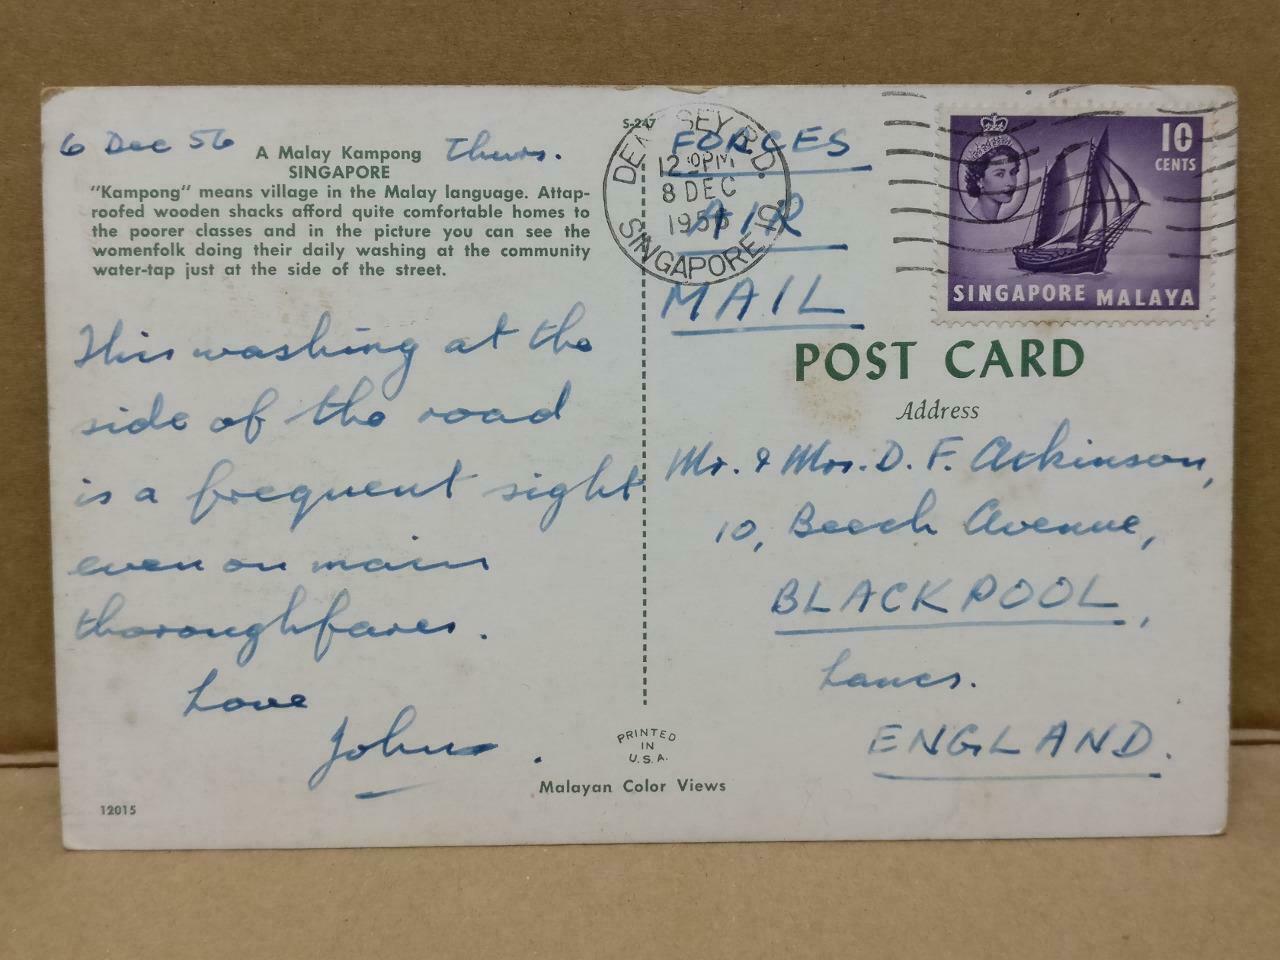 6 Dec 56
Thurs.
A Malay Kampong
SINGAPORE
"Kampong" means village in the Malay language. Attap-
roofed wooden shacks afford quite comfortable homes to
the poorer classes and in the picture you can see the
womenfolk doing their daily washing at the community
water-tap just at the side of the street.
This washing at the
side of the road
is a frequent sight
even on main
thoroughfares.
Love
John.
12015
S-247
PRINTED
IN
U.S.A.
Malayan Color Views
SEY RD.
12 PM
8 DEC
SINGAPORE
FORCES
AIR
MAIL
10
CENTS
SINGAPORE MALAYA
POST CARD
Address
Mr. & Mrs. D. F. Atkinson,
10, Beech Avenue,
BLACKPOOL,
Lancs.
ENGLAND.